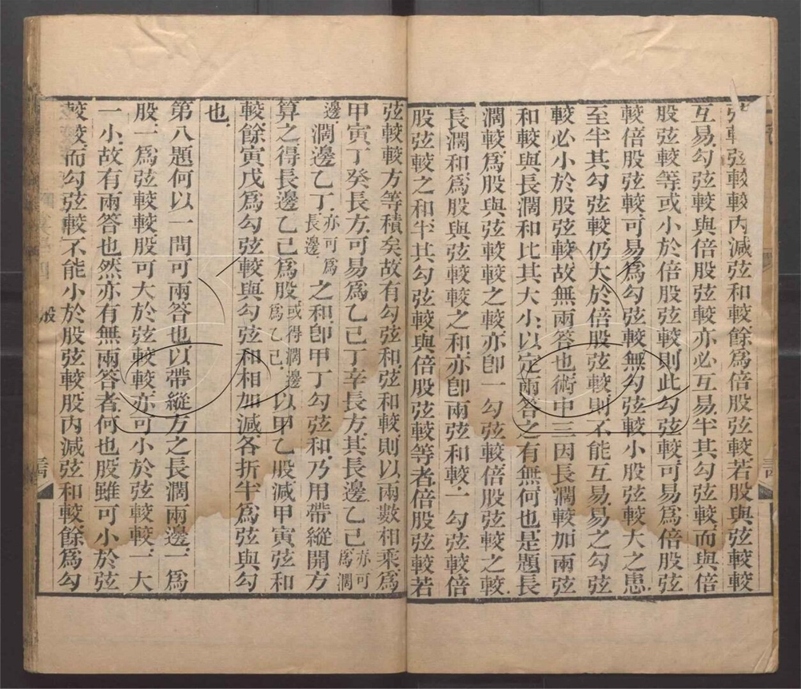 弦較弦較較內減弦和較餘爲倍股弦較若股與弦較較
互易勾弦較與倍股弦較亦必互易半其勾弦較而與倍
股弦較等或小於倍股弦較則此勾弦較可易爲倍股弦
較倍股弦較可易爲勾弦較無勾弦較小股弦較大之患
至半其勾弦較仍大於倍股弦較則不能互易易之勾弦
較必小於股弦較故無兩答也術中三因長濶較加兩弦
和較與長濶和比其大小以定兩答之有無何也是題長
濶較爲股與弦較較之較亦卽一勾弦較倍股弦較之較
長濶和爲股與弦較較之和亦卽兩弦和較一勾弦較倍
股弦較之和半其勾弦較與倍股弦較等者倍股弦較若
弦較較方等積矣故有勾弦和弦和較則以兩數相乘爲
甲寅丁癸長方可易爲乙己丁辛長方其長邊乙己亦可爲濶
邊濶邊乙丁亦可爲長邊之和卽甲丁勾弦和乃用帶縱開方
算之得長邊乙己爲股或得濶邊爲乙己以甲乙股減甲寅弦和
較餘寅戊爲勾弦較與勾弦和相加減各折半爲弦與勾
也
第八題何以一問可兩答也以帶縱方之長濶兩邊一爲
股一爲弦較較股可大於弦較較亦可小於弦較較一大
一小故有兩答也然亦有無兩答者何也股雖可小於弦
較較而勾弦較不能小於股弦較股內減弦和較餘爲勾